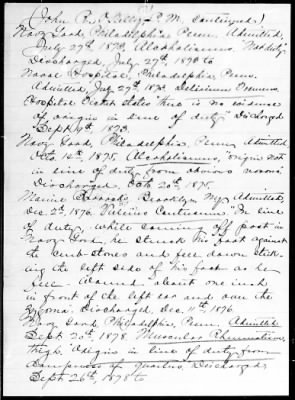 (John R. Kelly, P.M. Continued.)
Navy Yard Philadelphia Penn. Admitted,
July 27th 1873, Alcoholismus, "Not duty"
Discharged, July 29th 1873 to
Naval Hospital, Philadelphia Penn.
Admitted, July 29th 1873. Delirium Tremens.
Hospital Ticket states "there is no evidence
of origin in line of duty" Discharged
Sept. 9th 1873.
Navy Yard, Philadelphia, Penn. Admitted
Oct. 14th, 1875, Alcoholismus, "origin not
in line of duty from obvious reasons"
Discharged, Oct. 20th, 1875.
Marine Barracks, Brooklyn, N.Y., Admitted,
Dec. 2nd, 1876. "Vulnus Contusum" "In line
of duty, while coming off post in
Navy Yard, he struck his foot against
the curb-stones and fell down strik-
ing the left side of his face as he
fell. Wound about one inch
in front of the left ear and over the
zygoma. Discharged, Dec. 11th, 1876.
Navy Yard, Philadelphia, Penn. Admitted
Sept. 20th, 1878. Muscular Rheumatism,
thigh. "Origin in line of duty from
dampness of quarters. Discharged,
Sept. 26th, 1878 to